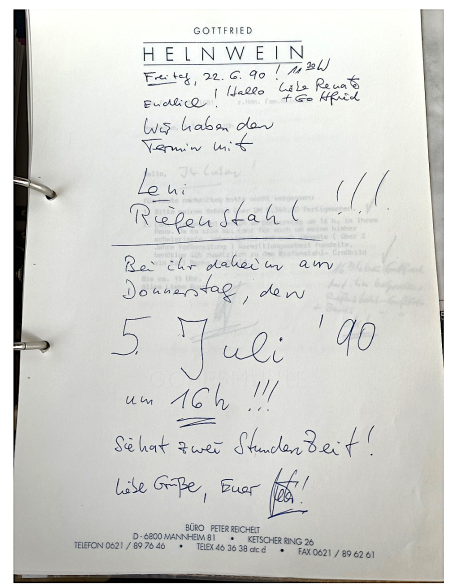 GOTTFRIED
HELNWEIN
Freitag, 22.6.90! 11 30h
Endlich! Hallo liebe Renate
+ Gottfried
Wir haben den
Termin mit
Leni
Riefenstahl !!!
Bei ihr daheim am
Donnerstag, den
5. Juli '90
um 16h !!!
Sie hat zwei Stunden Zeit!
Liebe Grüße, Euer
BÜRO PETER REICHELT
D - 6800 MANNHEIM 81 • KETSCHER RING 26
TELEFON 0621 / 89 76 46 • TELEX 46 36 38 atc d • FAX 0621 / 89 62 61